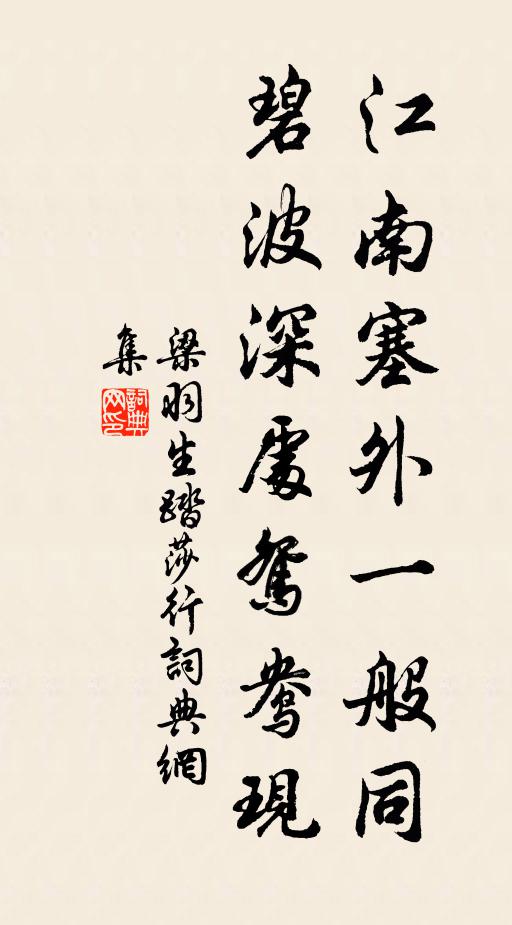 江南塞外一般同
碧波深處鴛鴦現
梁羽生踏莎行詞典網
集
詞典網印